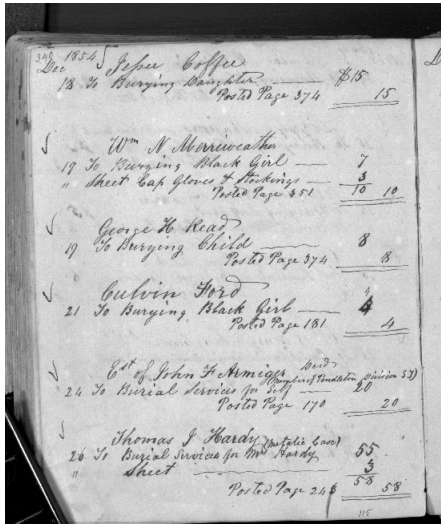 348 1854
Dec Jesse Coffee
18 To Burying Daughter $15
Posted Page 374 15
Wm N Merriweather
19 To Burying Black Girl 7
" Sheet Cap Gloves & Stockings 3
Posted Page 351 10 10
George H Read
19 To Burying Child 8
Posted Page 374 8
Culvin Ford
21 To Burying Black Girl 4
Posted Page 181 4
Est of John F Armiger Decd
(Member of Pendleton Division S T)
24 To Burial Services for Self 20
Posted Page 170 20
Thomas J Hardy (Metalic Case)
26 To Burial Services for Mrs Hardy 55
" Sheet 3
58
Posted Page 246 58
115